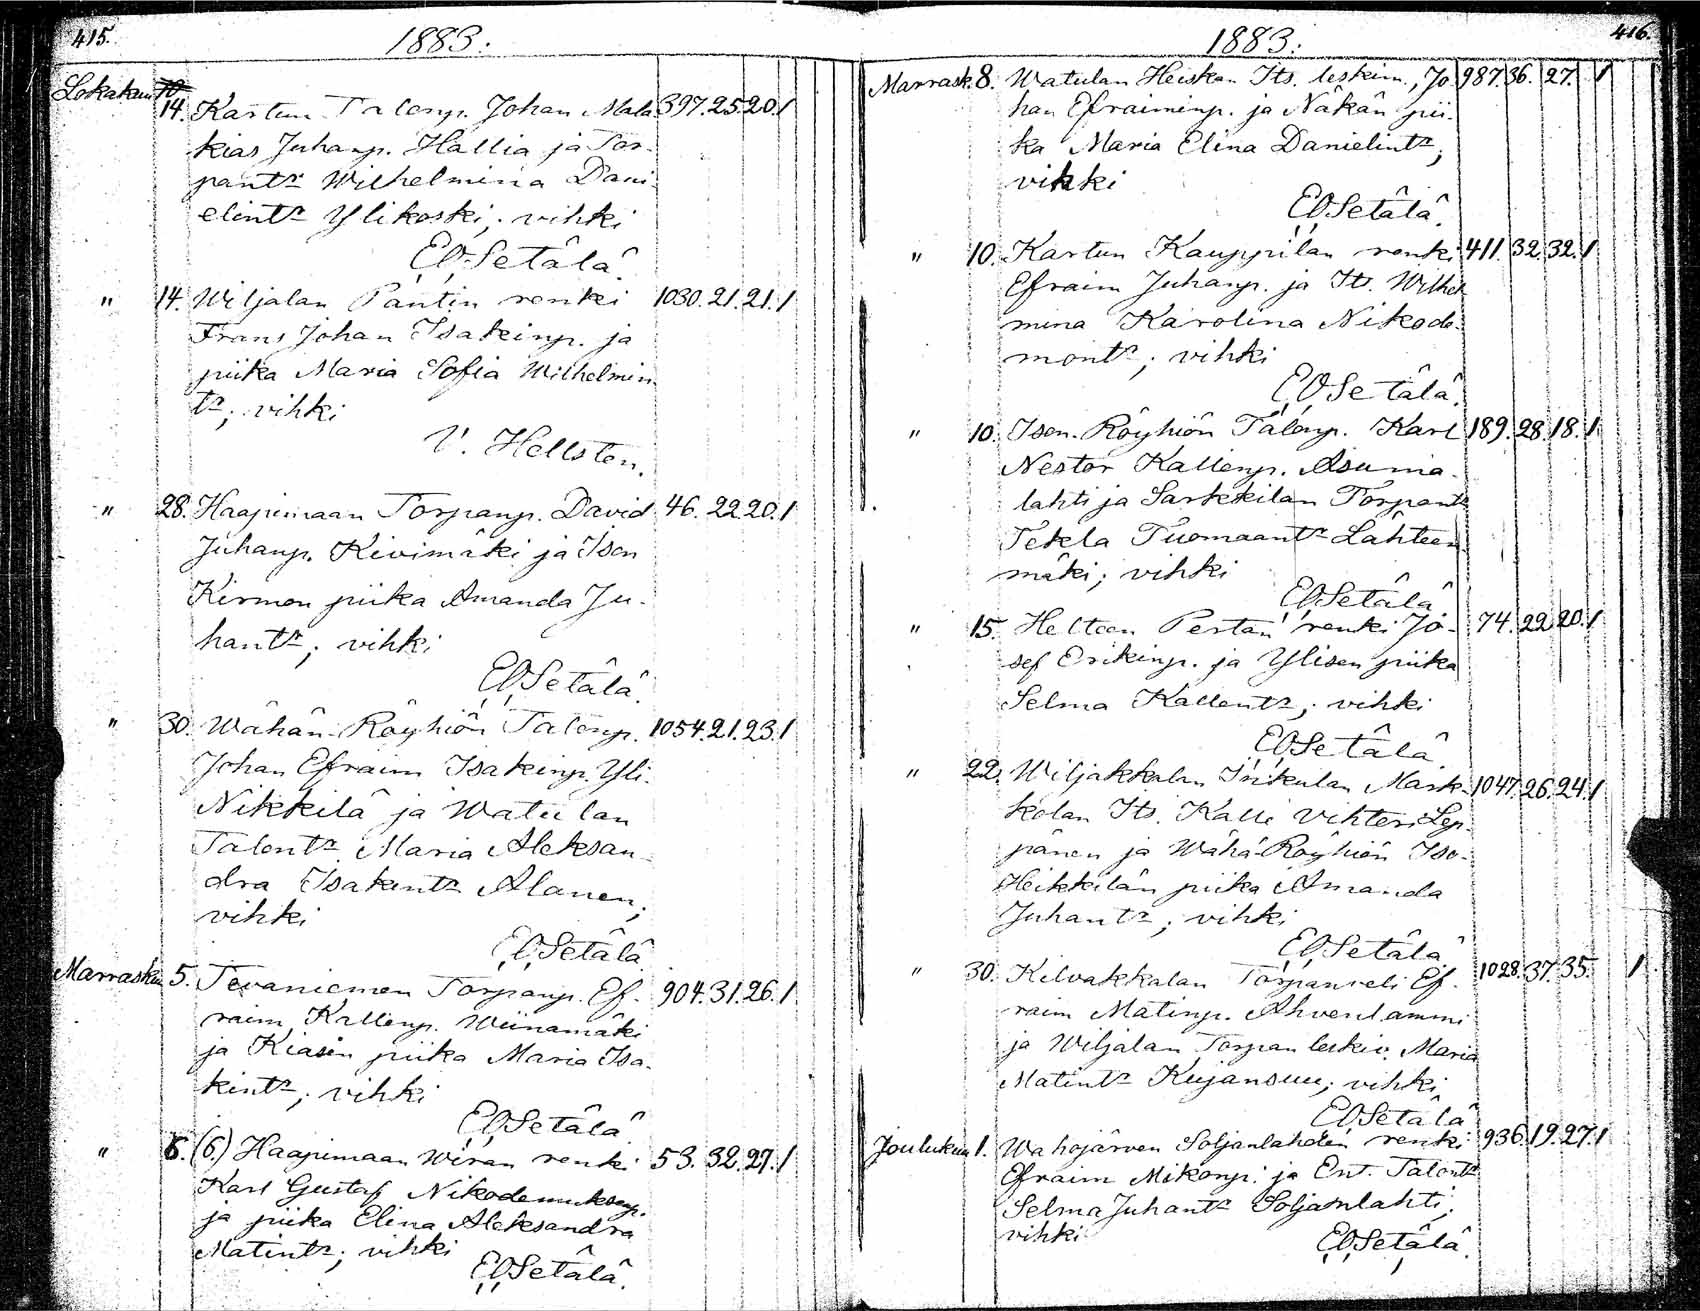 415.
1883.
Lokakuu 10
14. Kartun Talonp. Johan Mala- 397. 25. 20. 1
kias Juhanp. Hallia ja Tor-
pantr Wilhelmina Dani-
elintr Ylikoski; vihki
EOSetälä.
" 14. Wiljalan Pantin renki 1030. 21. 21. 1
Frans Johan Isakinp. ja
piika Maria Sofia Wilhelmin-
tr; vihki
V. Hellsten.
" 28. Haapimaan Torpanp. David 46. 22. 20. 1
Juhanp. Kivimäki ja Ison
Kirmon piika Amanda Ju-
hantr; vihki
EOSetälä.
" 30. Wähän-Röyhiön Talonp. 1054. 21. 23. 1
Johan Efraim Isakinp. Yli-
Nikkilä ja Watulan
Talontr Maria Aleksan-
dra Isakintr Alanen;
vihki
EOSetälä.
Marraskuu 5. Tevaniemen Torpanp. Ef- 904. 31. 26. 1
raim Kallenp. Wiinamäki
ja Kiasin piika Maria Isa-
kintr; vihki
EOSetälä.
" 6. (6) Haapimaan Wiran renki 53. 32. 27. 1
Karl Gustaf Nikodemuksenp.
ja piika Elina Aleksandra
Matintr; vihki
EOSetälä.
1883.
416.
Marrask. 8. Watulan Heiskan Its. leskim., Jo- 987. 36. 27. 1
han Efraiminp. ja Näkän pii-
ka Maria Elina Danielintr;
vihki
EOSetälä.
" 10. Kartun Kauppilan renki 411. 32. 32. 1
Efraim Juhanp. ja Its. Wilhel-
mina Karolina Nikode-
montr; vihki
EOSetälä.
" 10. Ison-Röyhiön Talonp. Karl 189. 28. 18. 1
Nestor Kallenp. Asuma-
lahti ja Sarkkilan Torpantr
Tekla Tuomaantr Lähteen-
mäki; vihki
EOSetälä.
" 15. Helteen Pertan renki Jo- 74. 22. 20. 1
sef Erikinp. ja Ylisen piika
Selma Kallentr; vihki
EOSetälä.
" 22. Wiljakkalan Inkulan Mark- 1047. 26. 24. 1
kolan Its. Kalle Vihteri Lep-
pänen ja Wähä-Röyhiön Iso-
Heikkilän piika Amanda
Juhantr; vihki
EOSetälä.
" 30. Kilvakkalan Torpanveli Ef- 1028. 37. 35. 1
raim Matinp. Ahvenlammi
ja Wiljalan Torpan leskiv. Maria
Matintr Kujansuu; vihki
EOSetälä
Joulukuu 1. Wahojärven Soljanlahden renki 936. 19. 27. 1
Efraim Mikonp. ja Ent. Talontr
Selma Juhantr Soljanlahti;
vihki
EOSetälä.